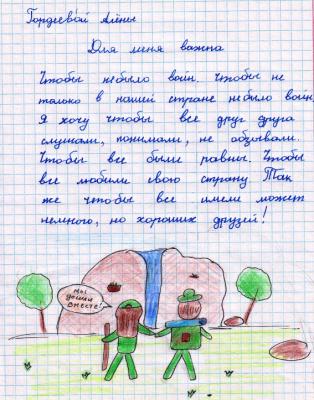 Гордеевой Алёны
Для меня важно
Чтобы небыло воин. Чтобы не
только в нашей стране небыло воин.
Я хочу чтобы все друг друга
слушали, понимали, не обзывали.
Чтобы все были равны. Чтобы
все любили свою страну. Так
же чтобы все имели может
немного, но хороших друзей!
мы
дошли
вместе!